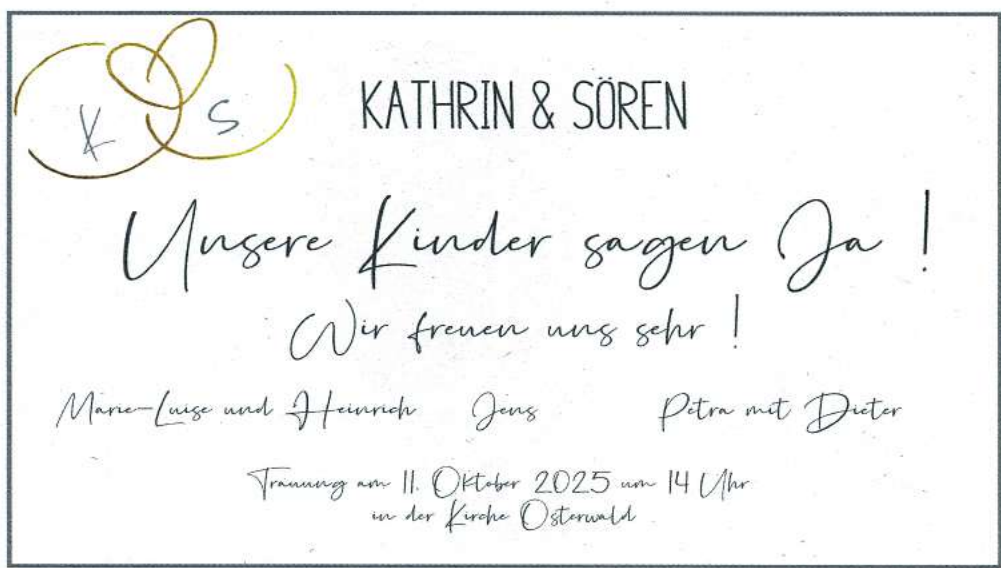 K S
KATHRIN & SÖREN
Unsere Kinder sagen Ja !
Wir freuen uns sehr !
Marie-Luise und Heinrich Jens Petra mit Dieter
Trauung am 11. Oktober 2025 um 14 Uhr
in der Kirche Osterwald